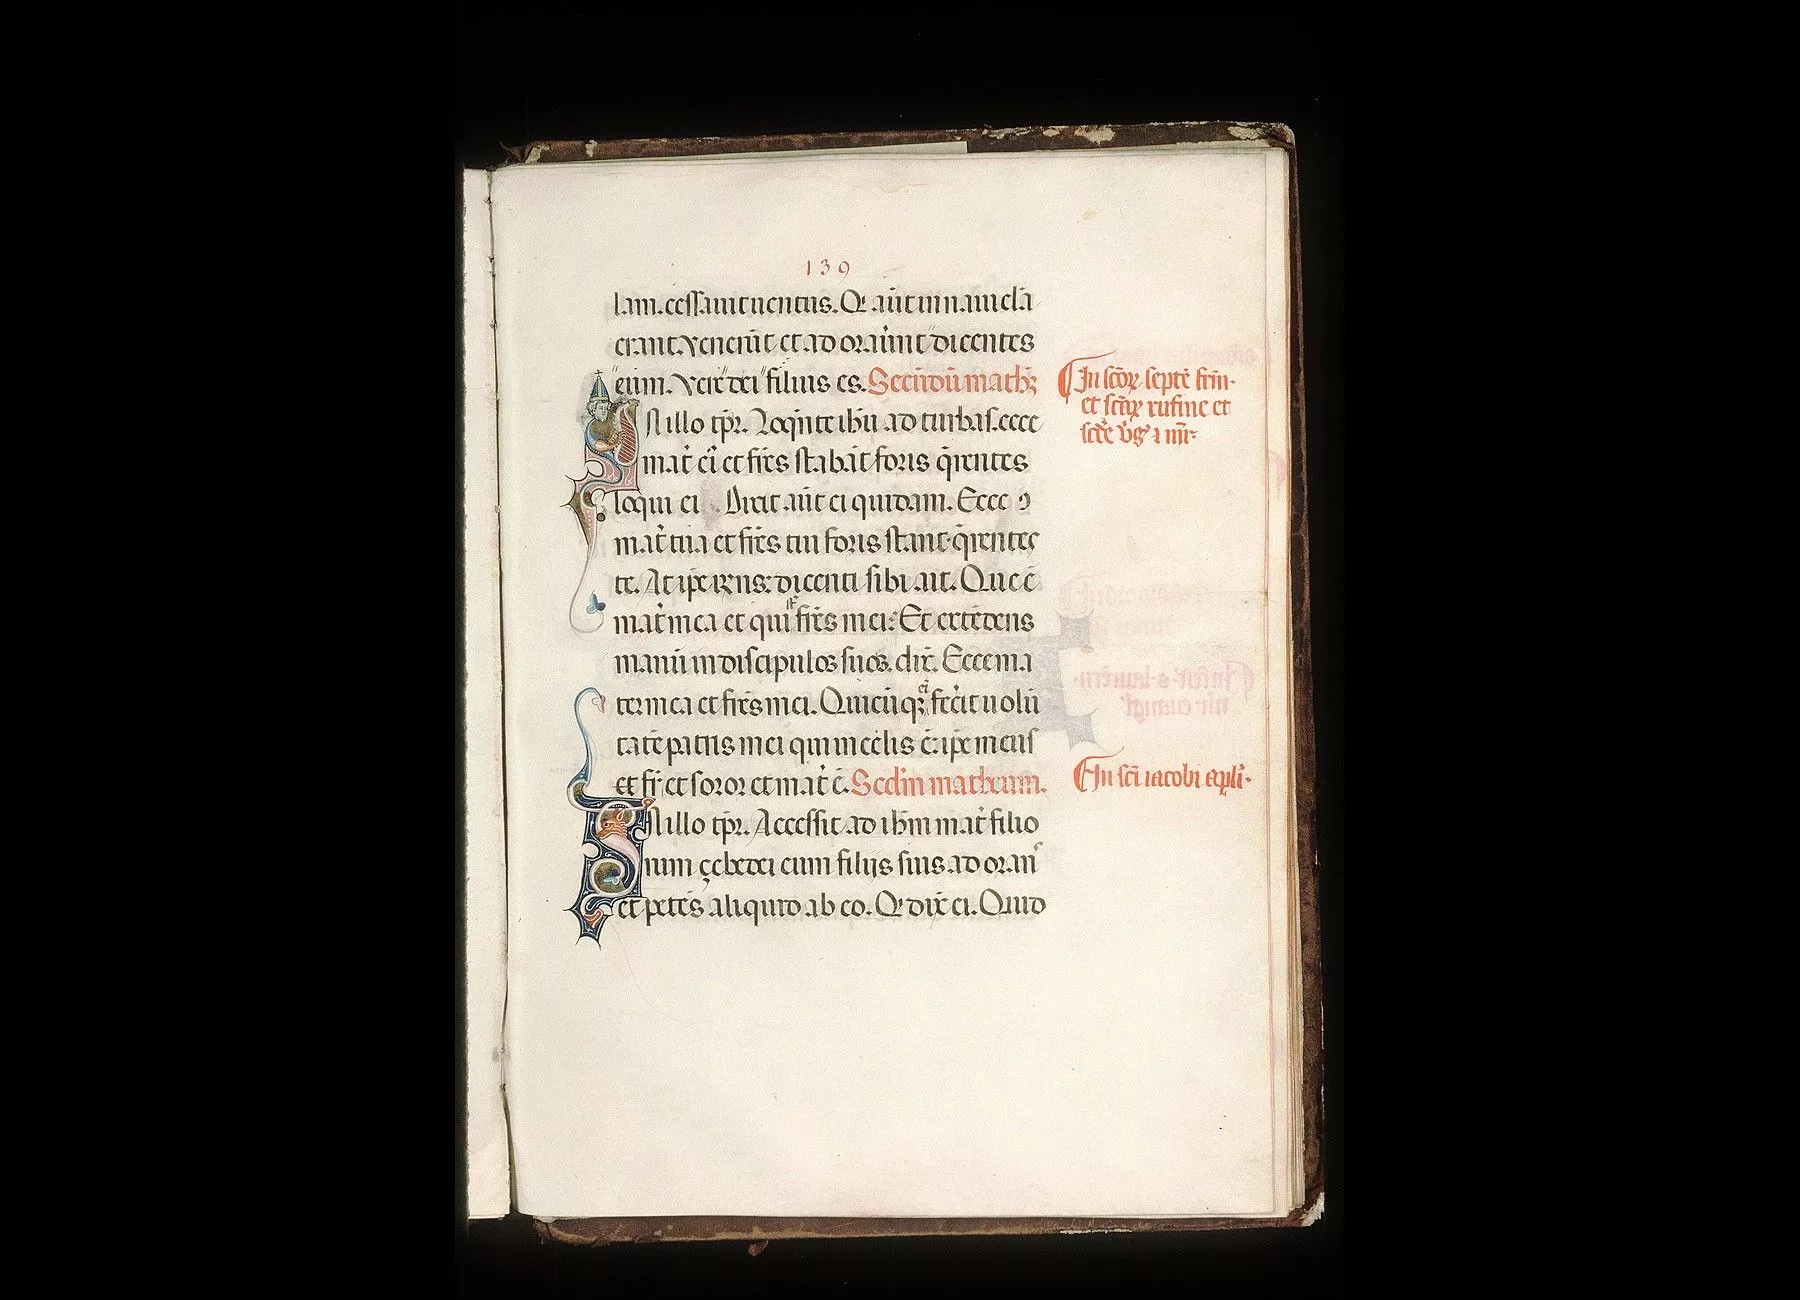 139
lam. cessauit uentus. Q̇ aūt in nauicl̄a
erant. Venerūt et adorauīnt dicentes
eum. Vere dei filius es. Secūdū math̄z
In illo tp̄r. Loqn̄te ihū ad turbas. ecce
mat̄ ei et frēs stabāt foris q̄rentes
loqui ei. Dixit aūt ei quidam. Ecce
mat̄ tua et frēs tui foris stant q̄rentes
te. At ip̄e rn̄s: dicenti sibi ait. Que ē
mat̄ mea et qui st̄ frēs mei: Et extēdens
manū in discipulos suos. dix̄. Ecce ma
ter mea et frēs mei. Quicūq̄ȝ ei fec̄it uolū
tatē patris mei qui in cel̄is ē: ip̄e meus
et fr̄ et soror et mat̄ ē. Scd̄m matheum.
In illo tp̄r. Accessit ad ih̄m mat̄ filio
rum çebedei cum filijs suis adoran̄
et petēs aliquid ab eo. Q̇ dix̄ ei. Quid
In sc̄oꝝ septē frm̄.
et sc̄aꝝ rufine et
scd̄e v̄ḡ ⁊ mr̄.
In sc̄i iacobi apl̄i.